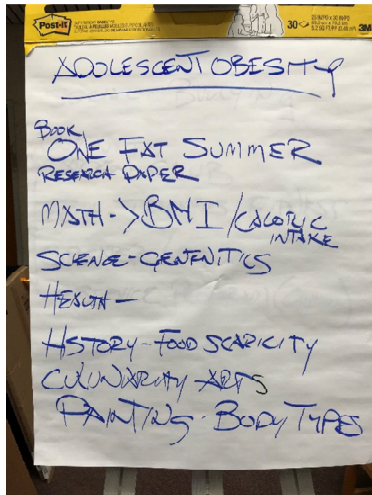 Post-it
30
3M
ADOLESCENT OBESITY
BOOK
ONE FAT SUMMER
RESEARCH PAPER
MATH -> BMI / CALORIC
INTAKE
SCIENCE - GENENITICS
HEALTH -
HISTORY - FOOD SCARICITY
CULUNARITY ARTS
PAINTING - BODY TYPES